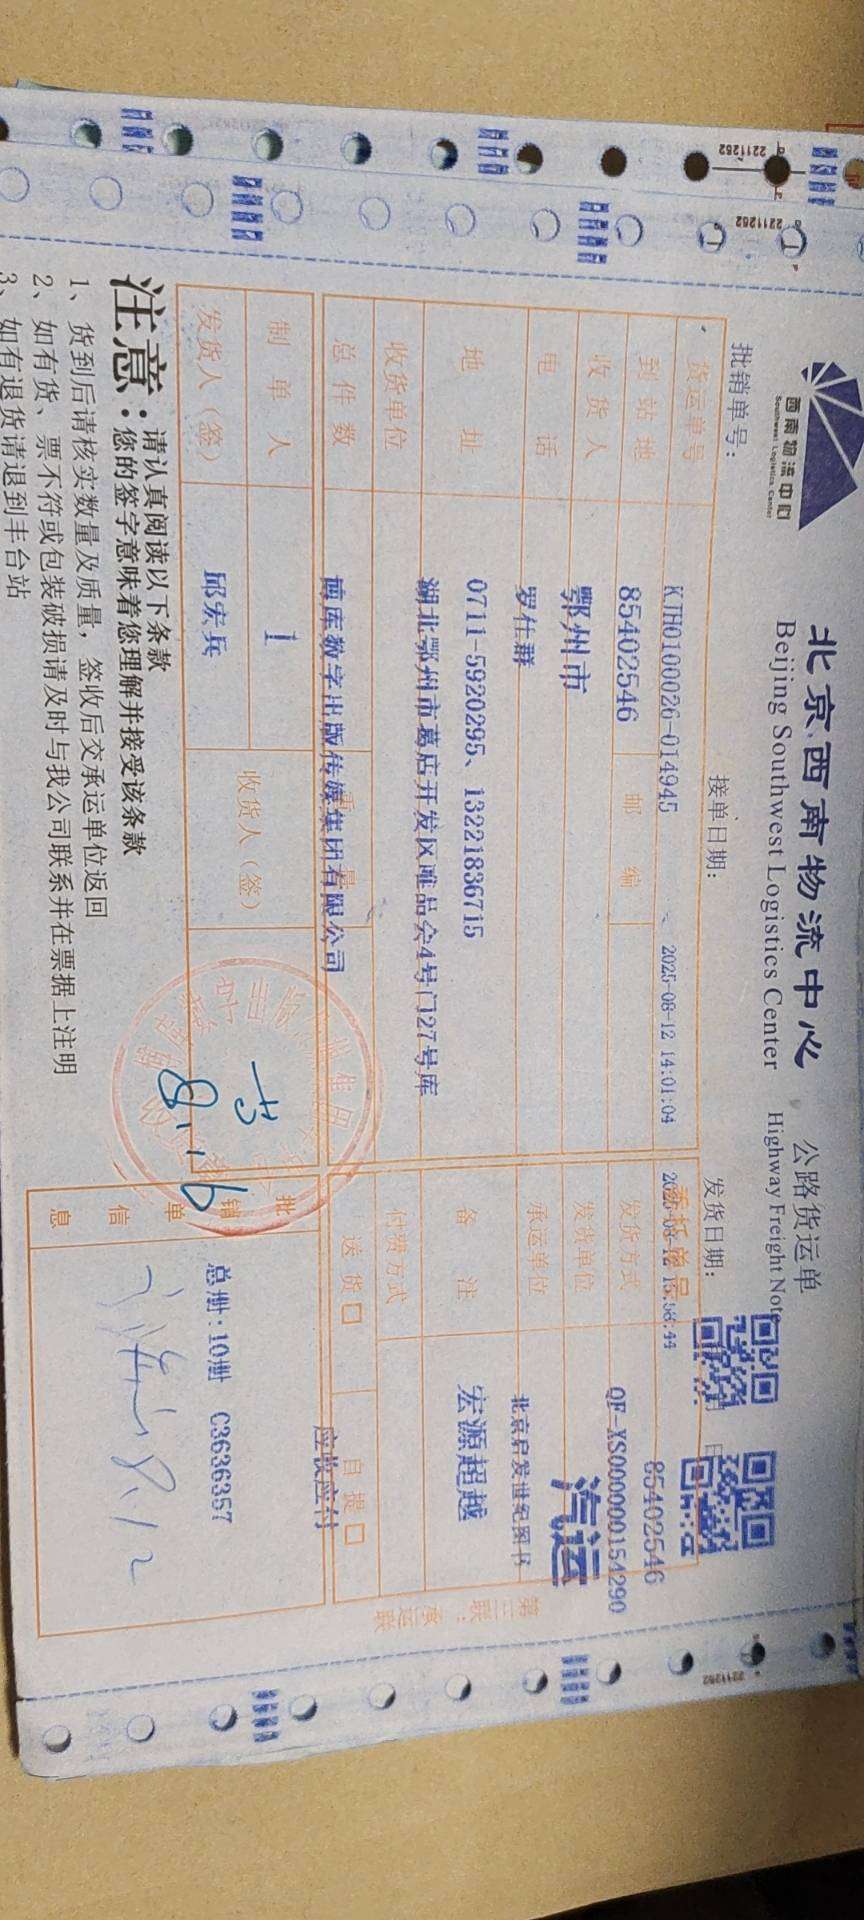 西南物流中心
Southwest Logistics Center
北京西南物流中心 公路货运单
Beijing Southwest Logistics Center Highway Freight Note
批销单号：
接单日期：
发货日期：
KJH0100026-014945
2025-08-12 14:01:04
85402546
货运单号
85402546
委托单号
QF-XS0000000154290
到站地
鄂州市
邮编
发货方式
汽运
收货人
罗仕群
发货单位
北京启发世纪图书
电话
0711-5920295、13221836715
承运单位
宏源超越
地址
湖北鄂州市葛店开发区唯品会4号门27号库
备注
收货单位
博库数字出版传媒集团有限公司
付费方式
应收应付
总件数
1
重量
送货□
自提□
制单人
邱宏兵
收货人(签)
发货人(签)
8.16
批销单信息
总册:10册 C3636357
8.12
第三联：承运联
注意：请认真阅读以下条款
您的签字意味着您理解并接受该条款
1、货到后请核实数量及质量，签收后交承运单位返回
2、如有货、票不符或包装破损请及时与我公司联系并在票据上注明
3、如有退货请退到丰台站
2211262
2211262
2211262